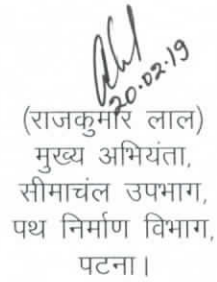 20.02.19
(राजकुमार लाल)
मुख्य अभियंता,
सीमाचंल उपभाग,
पथ निर्माण विभाग,
पटना।